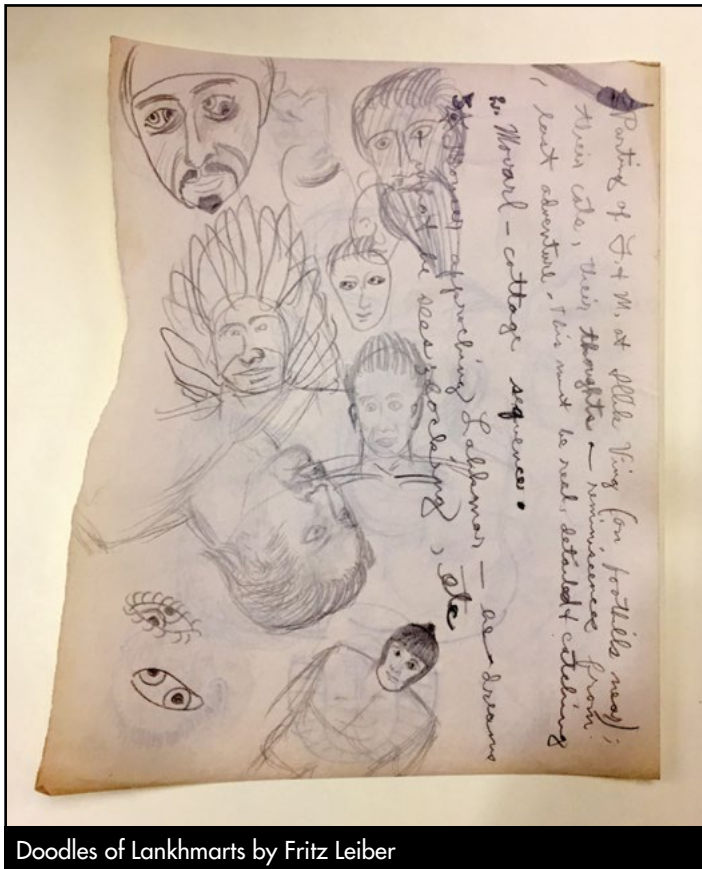 Parting of F. & M. at Illik Ving (on foothills near);
their cats, their thoughts – reminiscences from
last adventure. This must be real, detailed & catching
2. Movarl – cottage sequence.
approaching Lahkmar – as dreams
what he sees; docking, etc
Doodles of Lankhmarts by Fritz Leiber